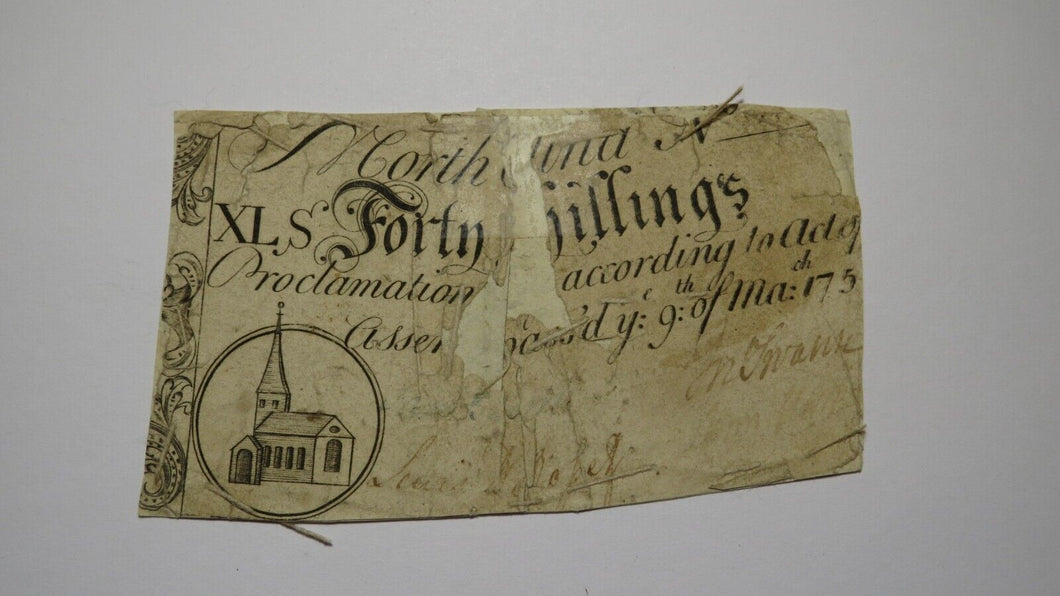 North lina N.º
XL S. Forty hillings
Proclamation according to Act of
Assem pass'd y.e 9.th of Ma:ch 175
Jn Swann